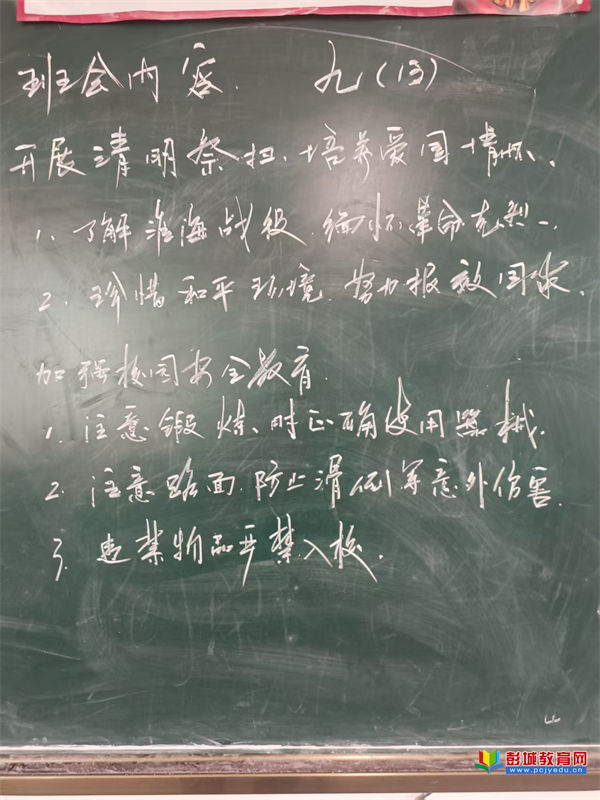 班会内容. 九(13)
开展清明祭扫、培养爱国情怀、
1、了解淮海战役.缅怀革命先烈、
2. 珍惜和平环境.努力报效国家.
加强校园安全教育.
1. 注意锻炼、时正确使用器械.
2. 注意路面.防止滑倒等意外伤害.
3. 违禁物品严禁入校.
彭城教育网
www.pcjyedu.cn